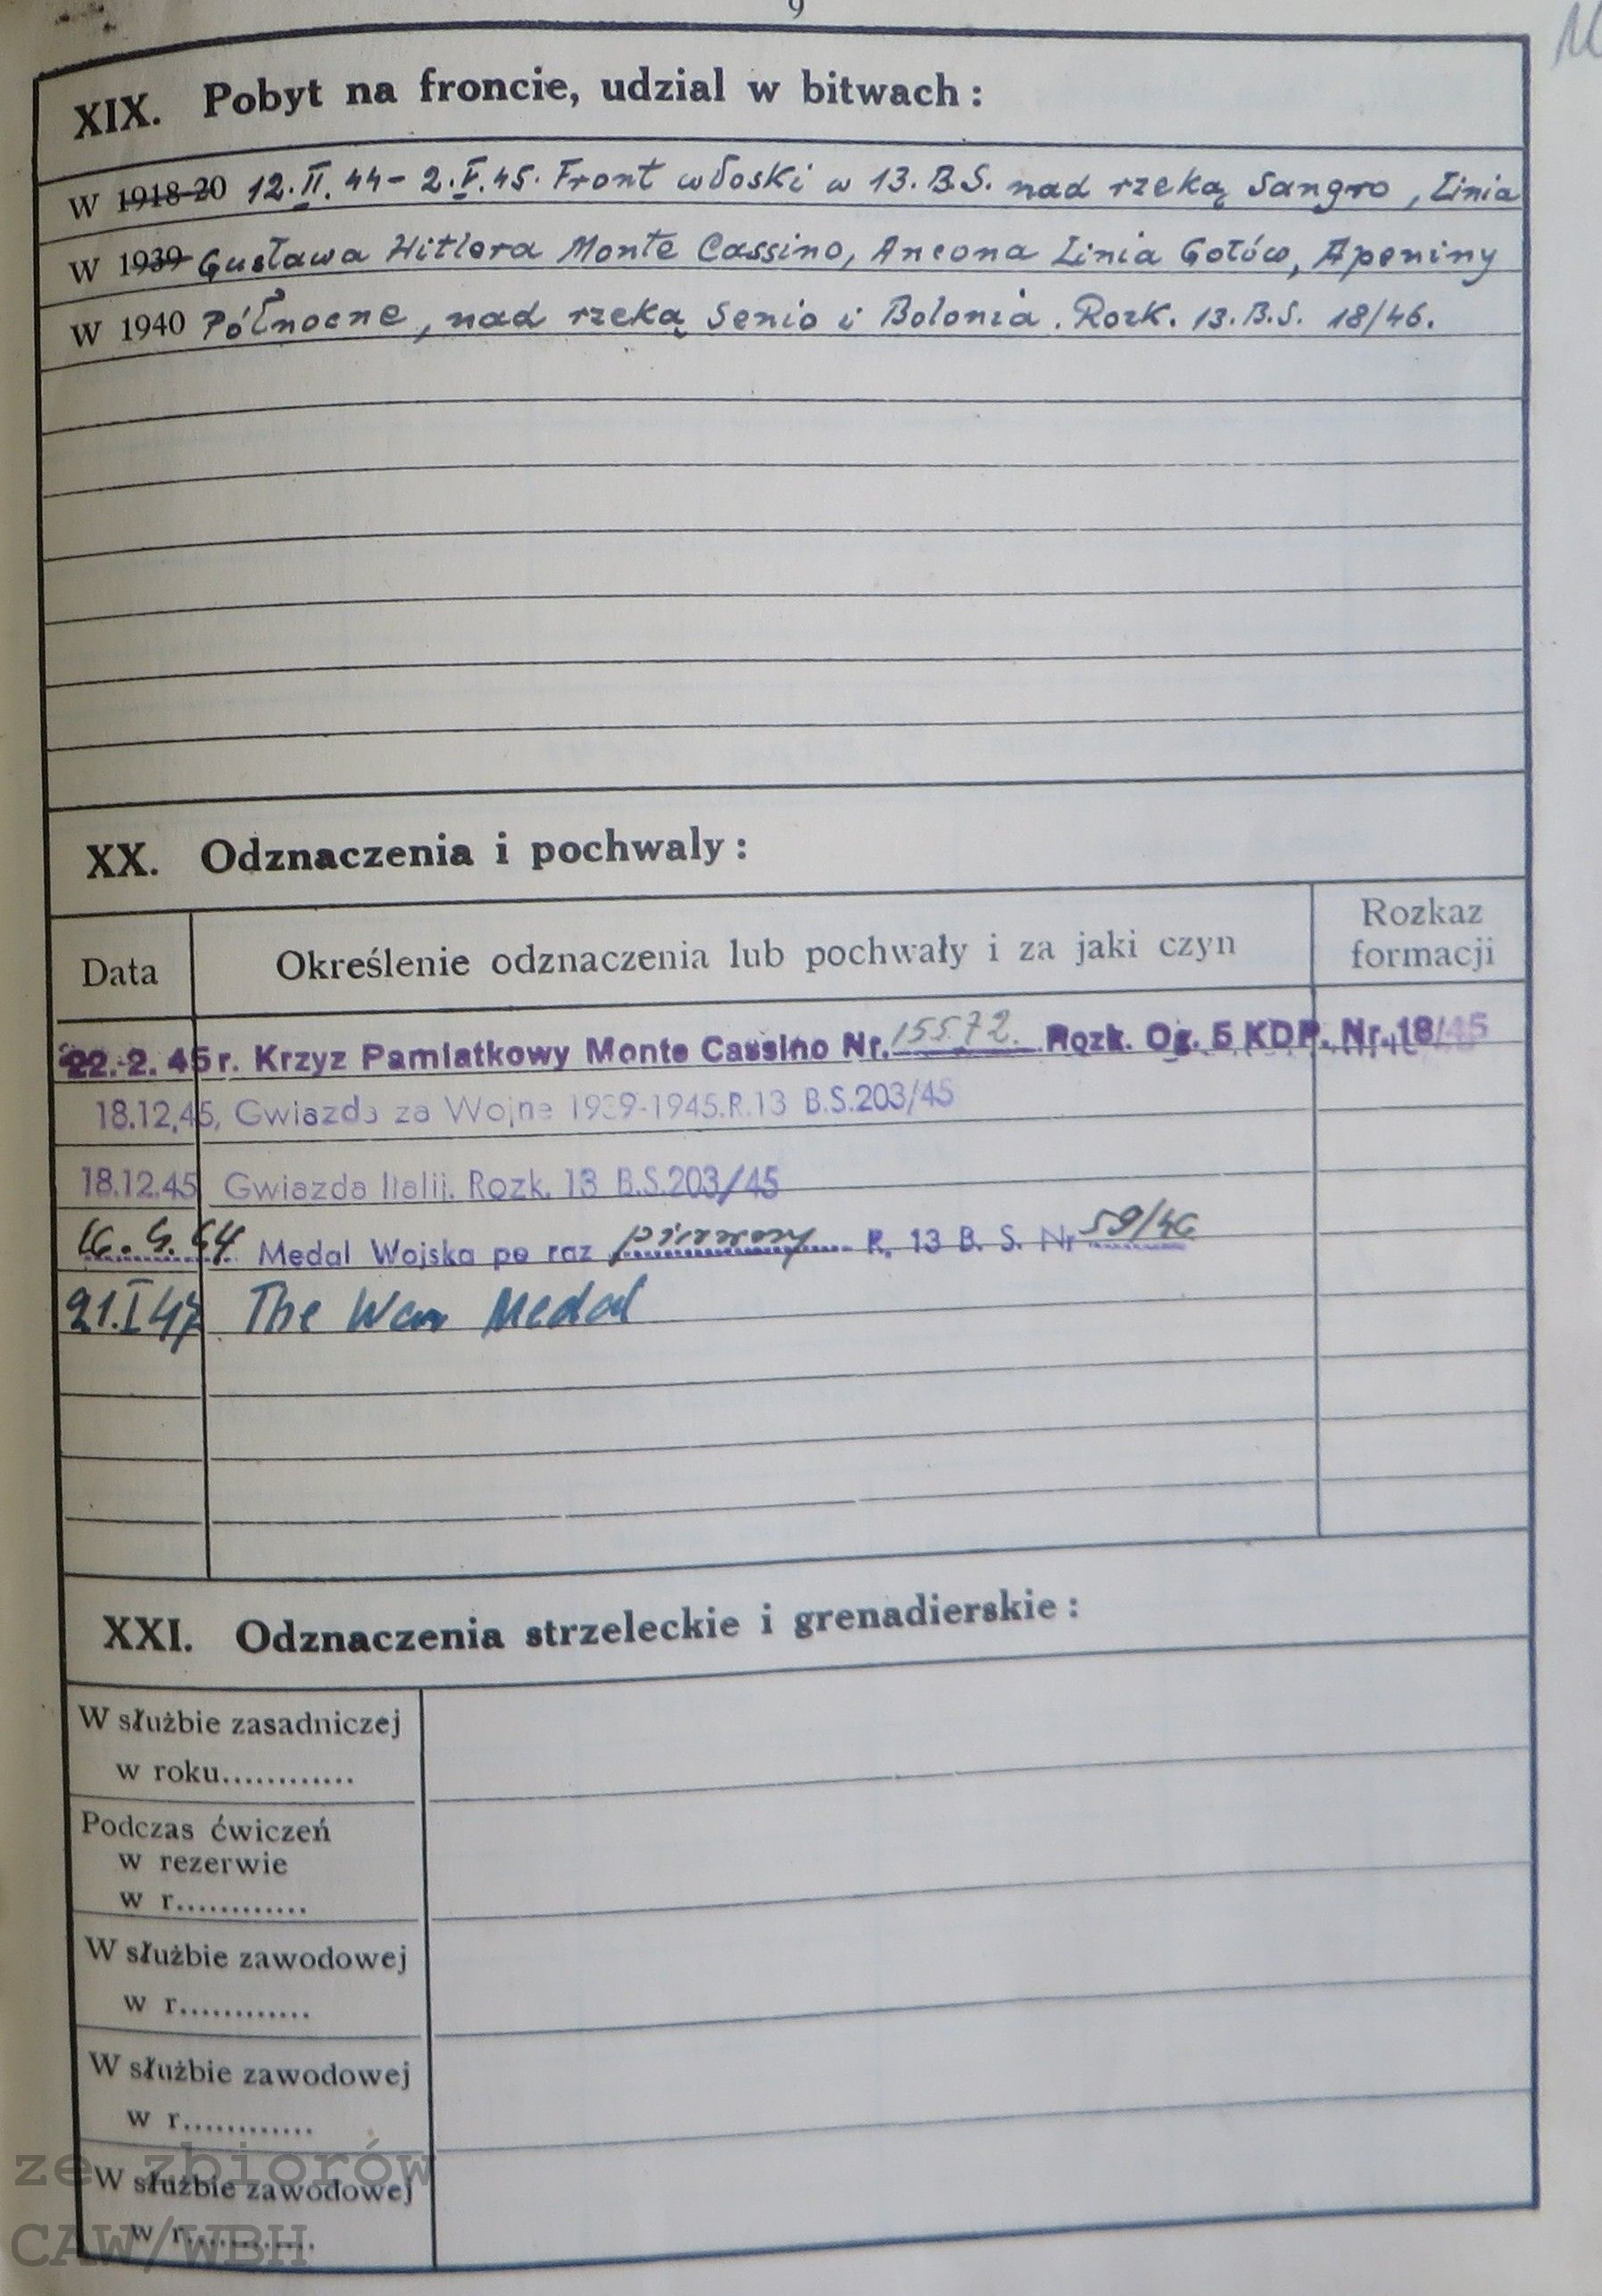 9
XIX. Pobyt na froncie, udzial w bitwach:
W 1918-20 12.II.44-2.V.45. Front włoski w 13.B.S. nad rzeką Sangro, Linia
W 1939 Gustawa Hitlera Monte Cassino, Ancona Linia Gotów, Apeniny
W 1940 Północne, nad rzeką Senio i Bolonia. Rozk. 13.B.S. 18/46.
XX. Odznaczenia i pochwaly:
Data
Określenie odznaczenia lub pochwały i za jaki czyn
Rozkaz
formacji
22.2.45 r. Krzyz Pamiatkowy Monte Cassino Nr. 15572. Rozk. Og. 5 KDP. Nr. 18/45
18.12,45, Gwiazda za Wojne 1939-1945.R.13 B.S.203/45
18.12.45 Gwiazda Italii. Rozk. 13 B.S.203/45
Medal Wojska po raz pierwszy R. 13 B. S. Nr 59/46
21.I 47 The War Medal
XXI. Odznaczenia strzeleckie i grenadierskie:
W służbie zasadniczej
w roku............
Podczas ćwiczeń
w rezerwie
w r............
W służbie zawodowej
w r............
W służbie zawodowej
w r............
W służbie zawodowej
w r............
ze zbiorów
CAW/WBH